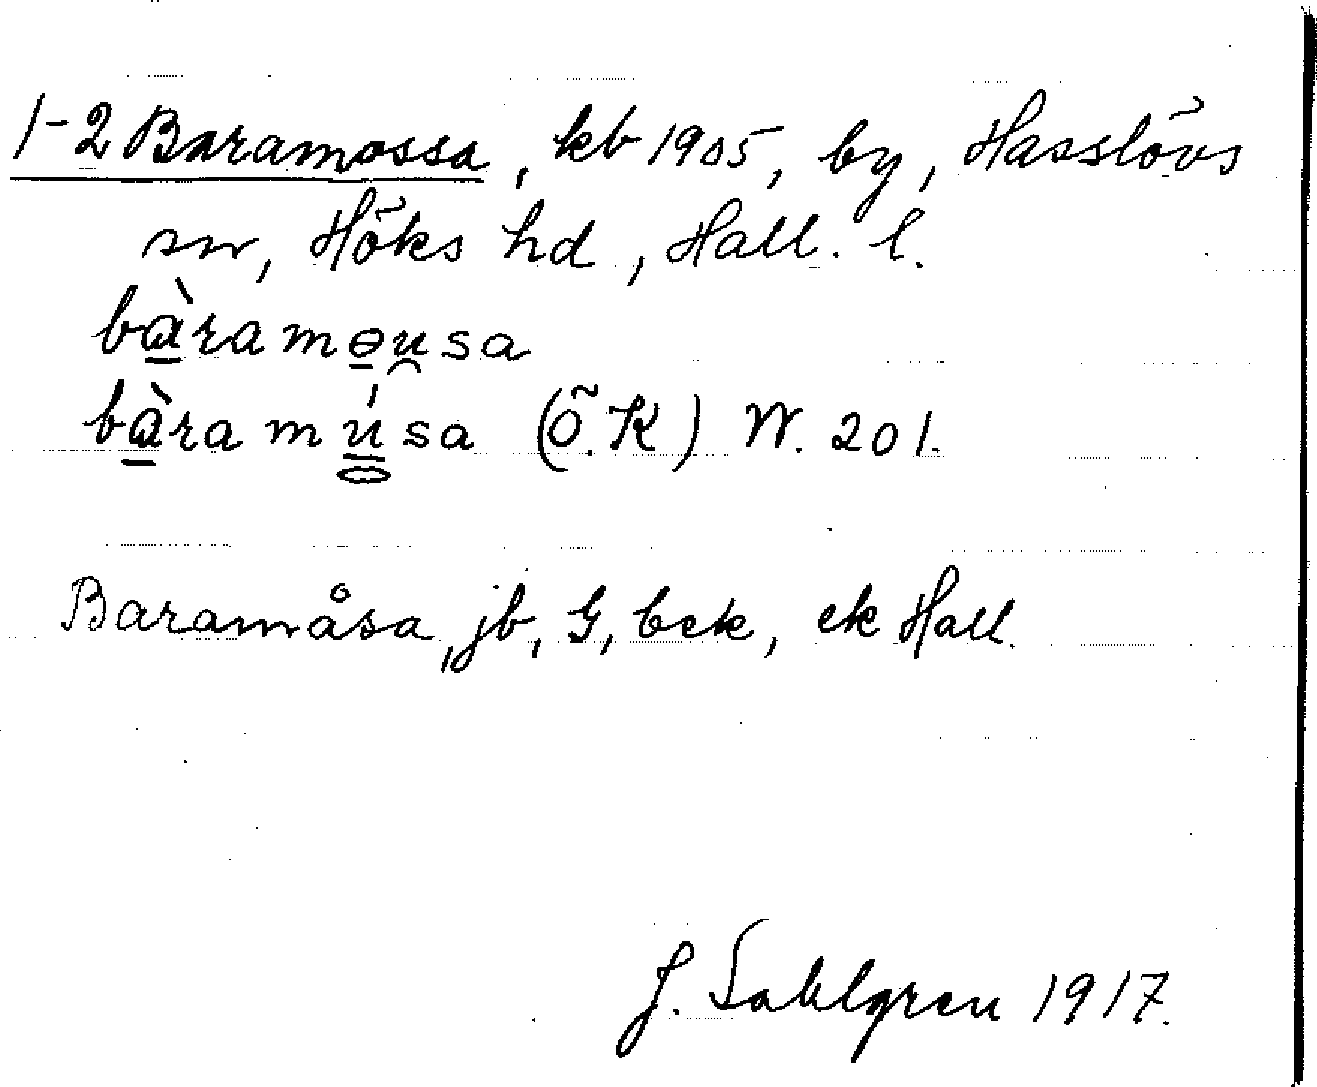 1-2 Baramossa, kb 1905, by, Hasslövs
sn, Höks hd, Hall. l.
bàramɵu̯sa
bàramúsa (Ö.K) W. 201.
Baramåsa, jb, G, bek, ek Hall.
J. Sahlgren 1917.